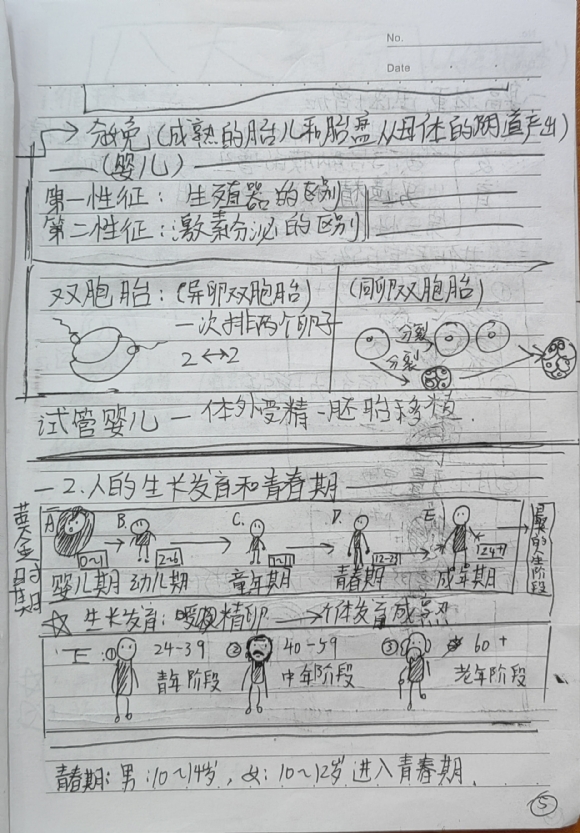 No.
Date
→ 分娩(成熟的胎儿和胎盘从母体的阴道产出)
(婴儿)
第一性征: 生殖器的区别
第二性征: 激素分泌的区别
双胞胎: (异卵双胞胎)
一次排两个卵子
2 ↔ 2
(同卵双胞胎)
分裂
分裂
试管婴儿 — 体外受精 - 胚胎移植.
一2.人的生长发育和青春期
黄金时期
A. B. C. D. E.
0~1 2~6 12~23 24+
婴儿期 幼儿期 童年期 青春期 成年期
的人生阶段
☆ 生长发育: 精卵 → 个体发育成熟
E: ① 24-39 ② 40-59 ③ 60+
青年阶段 中年阶段 老年阶段
青春期: 男:10~14岁, 女: 10~12岁 进入青春期.
5